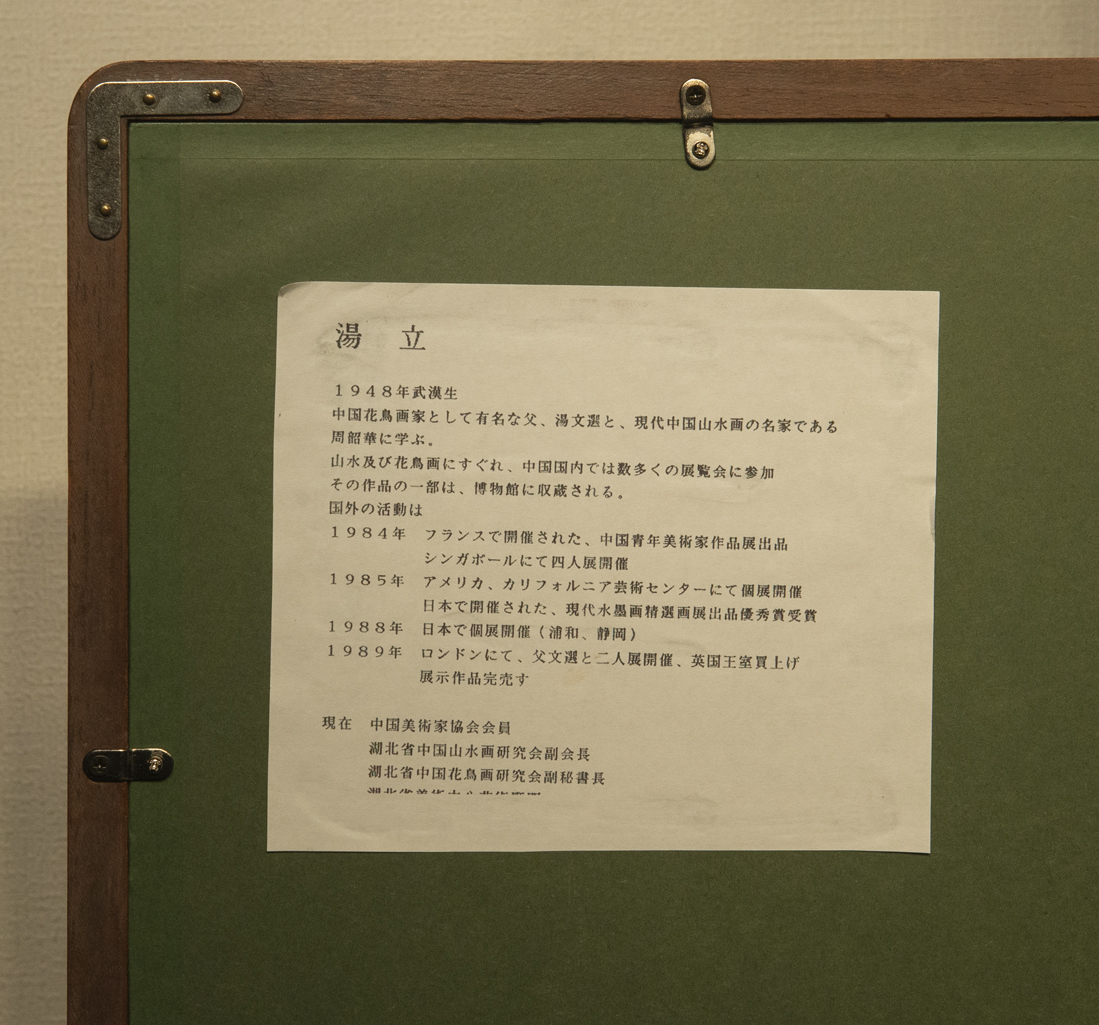 湯　立
１９４８年武漢生
中国花鳥画家として有名な父、湯文選と、現代中国山水画の名家である
周韶華に学ぶ。
山水及び花鳥画にすぐれ、中国国内では数多くの展覧会に参加
その作品の一部は、博物館に収蔵される。
国外の活動は
１９８４年　フランスで開催された、中国青年美術家作品展出品
シンガポールにて四人展開催
１９８５年　アメリカ、カリフォルニア芸術センターにて個展開催
日本で開催された、現代水墨画精選画展出品優秀賞受賞
１９８８年　日本で個展開催（浦和、静岡）
１９８９年　ロンドンにて、父文選と二人展開催、英国王室買上げ
展示作品完売す
現在　中国美術家協会会員
湖北省中国山水画研究会副会長
湖北省中国花鳥画研究会副秘書長
湖北省美術